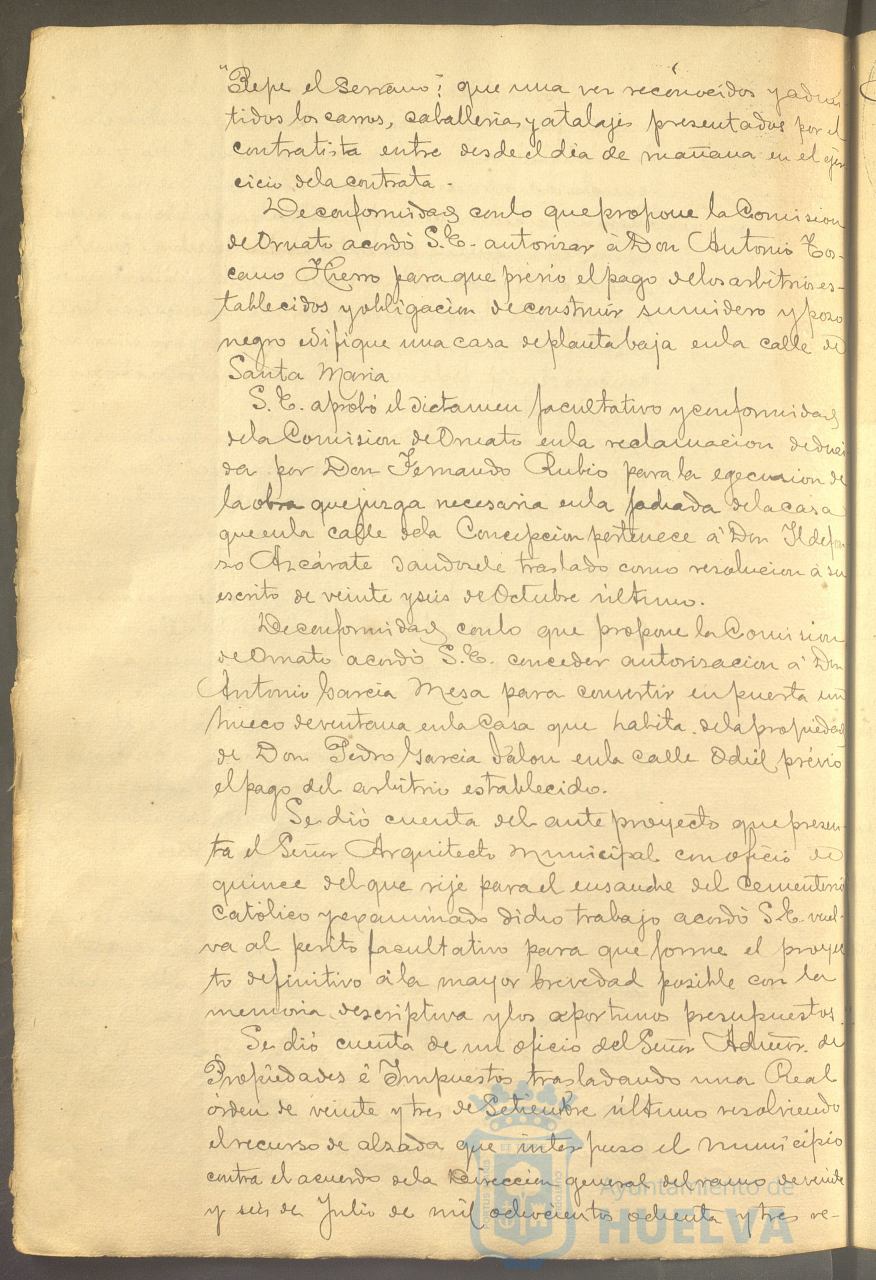 "Pepe el Serrano"; que una vez reconocidos y admi
tidos los carros, caballerias y atalajes presentados por el
contratista entre desde el dia de mañana en el ejer
cicio de la contrata.
De conformidad con lo que propone la Comision
de Ornato acordó S.E. autorizar á Don Antonio Tos-
cano Hierro para que prévio el pago de los arbitrios es-
tablecidos y obligacion de construir sumidero y pozo
negro edifique una casa de planta baja en la calle de
Santa Maria
S.E. aprobó el dictamen facultativo y conformidad
de la Comision de Ornato en la reclamacion deduci
da por Don Fernando Rubio para la egecucion de
la obra que juzga necesaria en la fachada de la casa
que en la calle de la Concepcion pertenece á Don Ildefon
so Azcárate dandosele traslado como resolucion á su
escrito de veinte y seis de Octubre último.
De conformidad con lo que propone la Comision
de Ornato acordó S.E. conceder autorizacion á Don
Antonio Garcia Mesa para convertir en puerta un
hueco de ventana en la Casa que habita de la propiedad
de Don Pedro Garcia Jalon en la calle Odiel prévio
el pago del arbitrio establecido.
Se dió cuenta del ante proyecto que presen-
ta el Señor Arquitecto Municipal con oficio de
quince del que rije para el ensanche del Cementerio
Católico y examinado dicho trabajo acordó S.E. vuel-
va al perito facultativo para que forme el proyec
to definitivo á la mayor brevedad posible con la
memoria descriptiva y los oportunos presupuestos.
Se dió cuenta de un oficio del Señor Admor. de
Propiedades é Impuestos trasladando una Real
órden de veinte y tres de Setiembre último resolviendo
el recurso de alzada que interpuso el municipio
contra el acuerdo de la Direccion general del ramo de veinte
y seis de Julio de mil ochocientos ochenta y tres re-
Ayuntamiento de
HUELVA